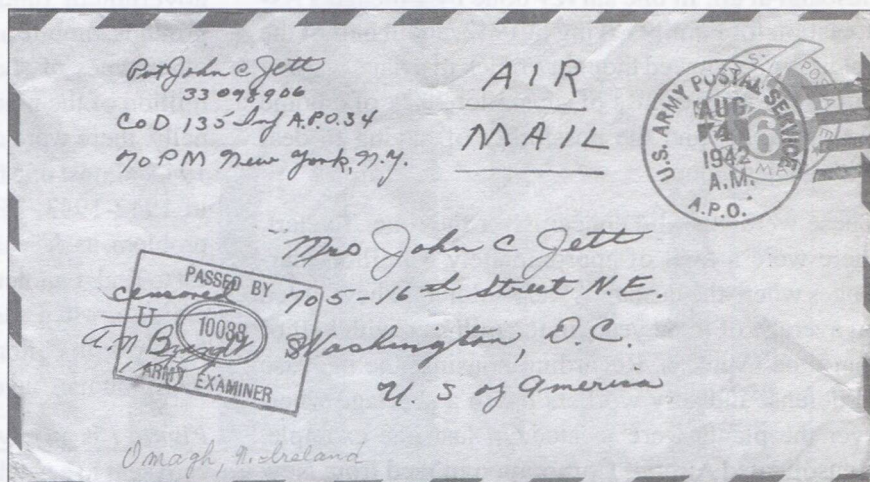 Pvt John C Jett
33098906
Co D 135 Inf A.P.O. 34
% PM New York, N.Y.
AIR
MAIL
U.S. ARMY POSTAL SERVICE
AUG
4
1942
A.M.
A.P.O.
6
Mrs John C Jett
705-16th Street N.E.
Washington, D.C.
U. S of America
PASSED BY
censored
U
10088
ARMY EXAMINER
Omagh, N. Ireland